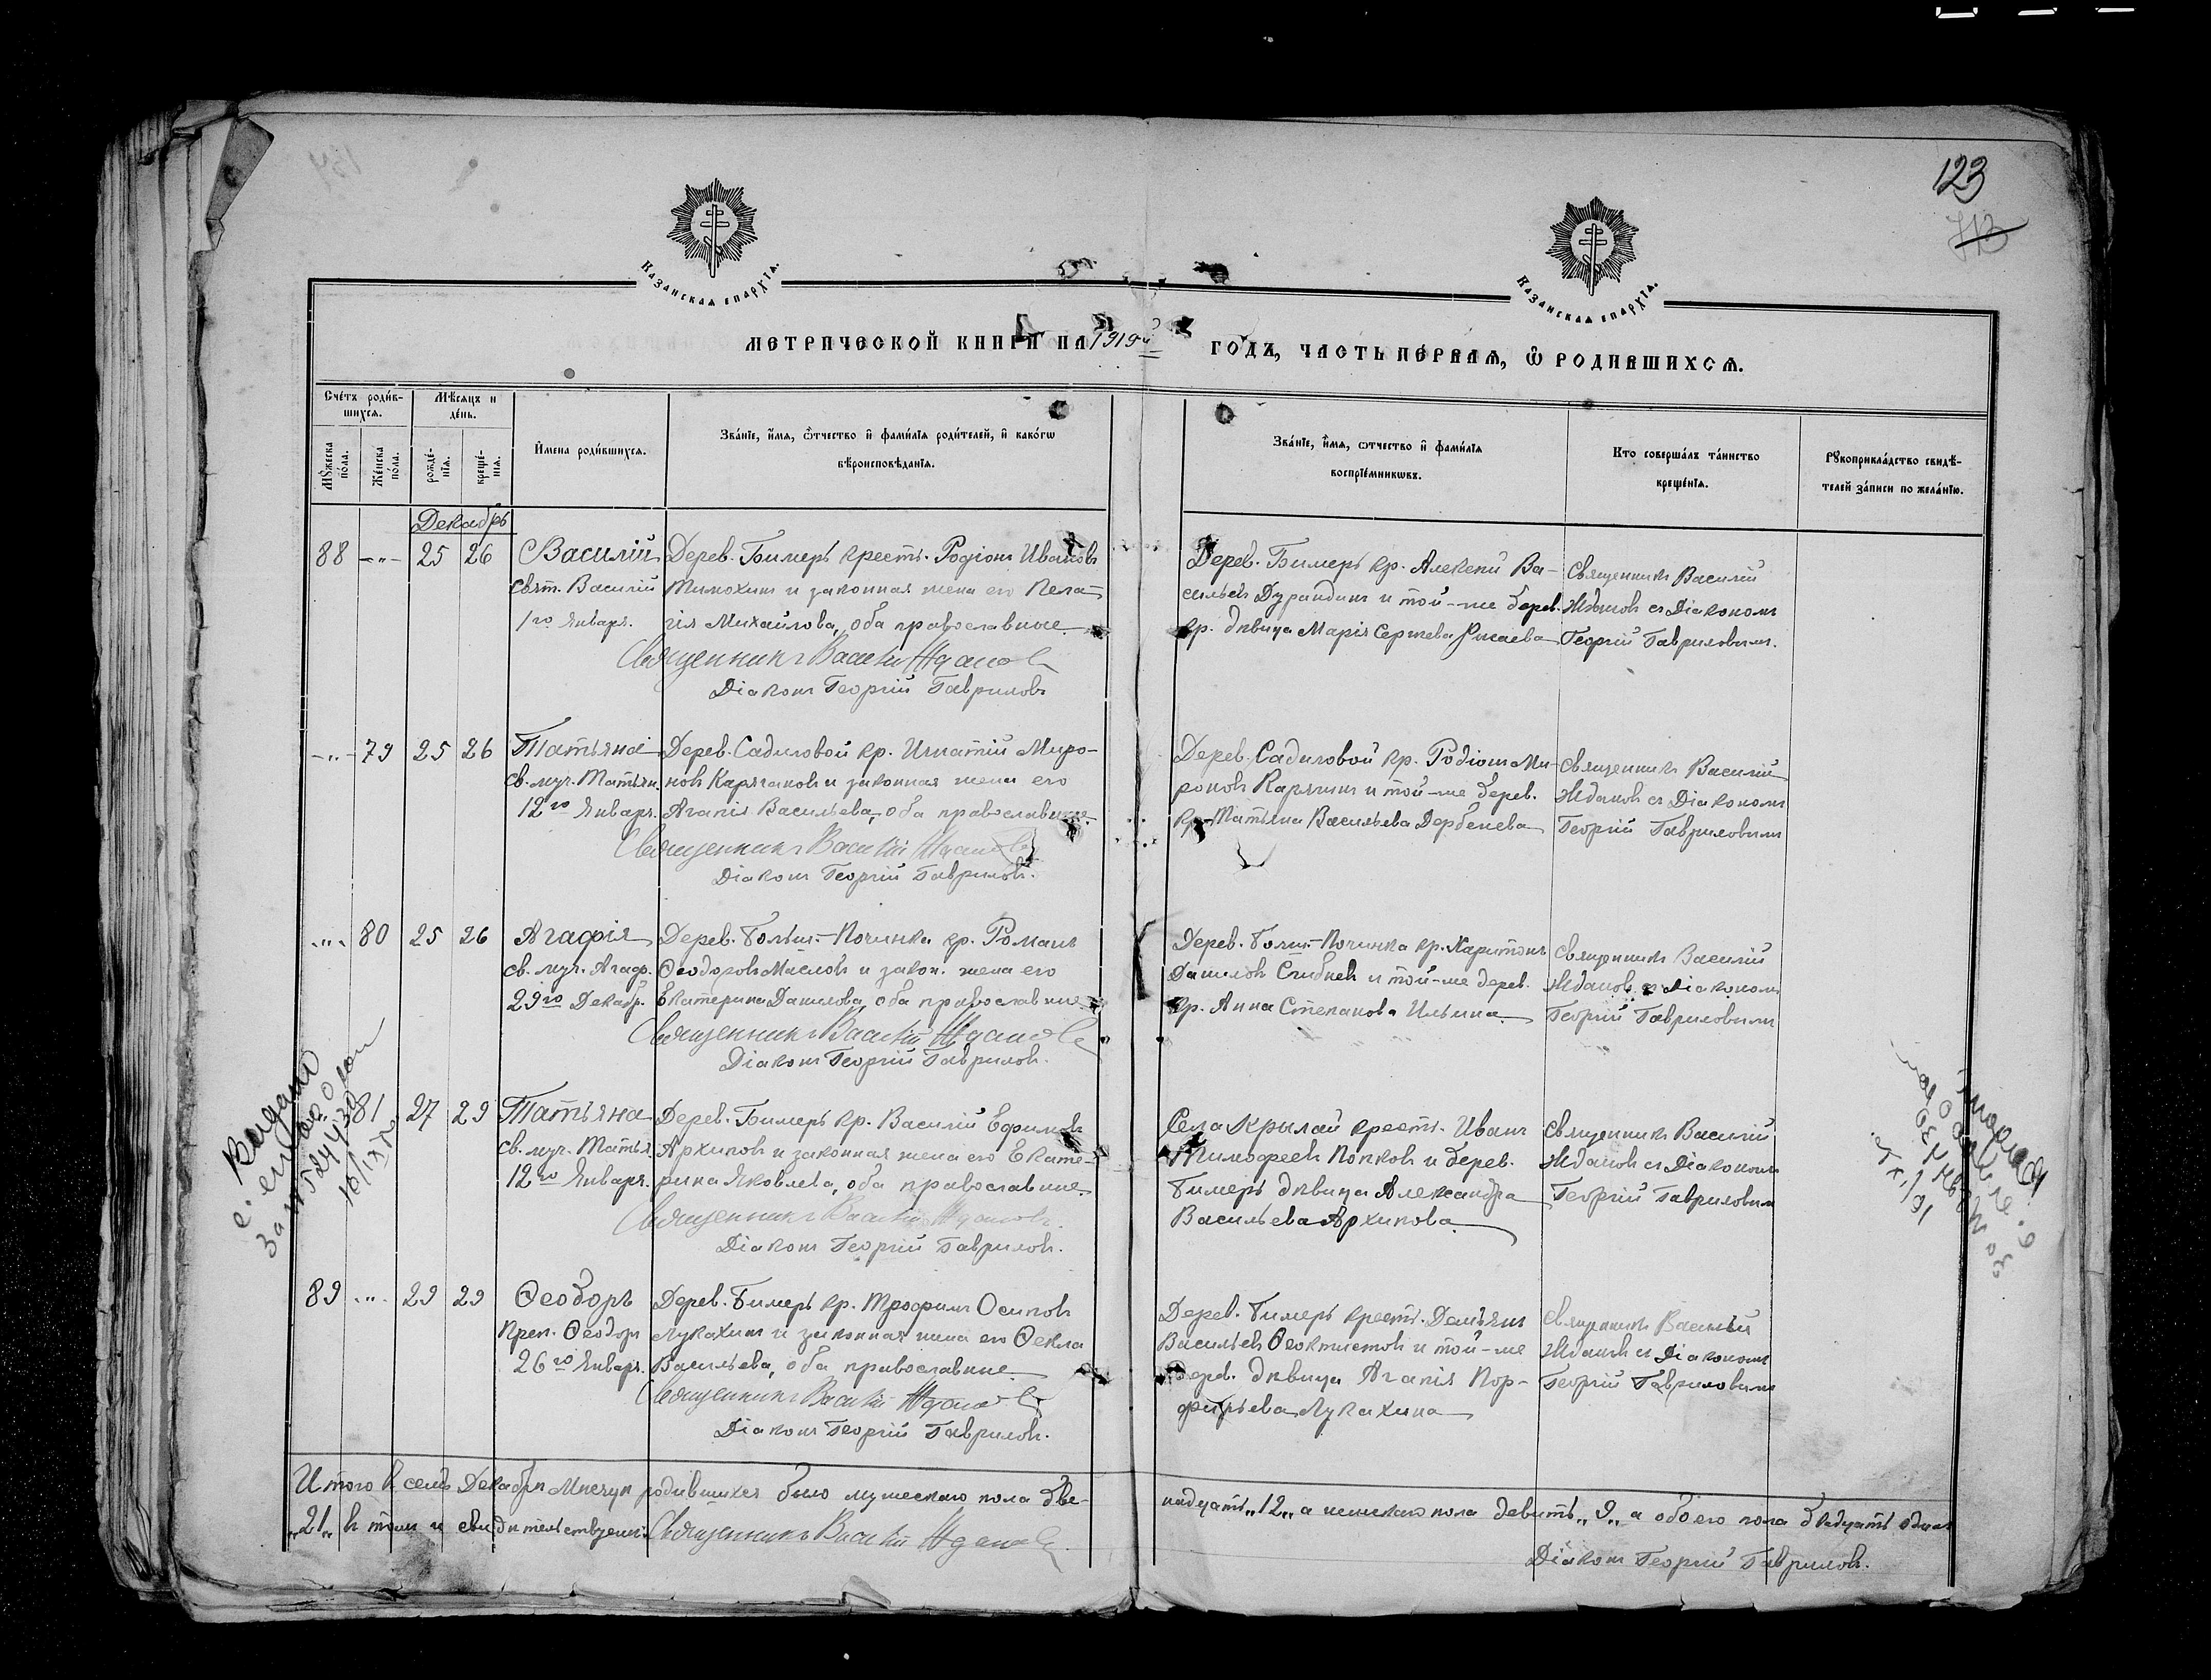 123
713
Казанская епархїѧ.
Казанская епархїѧ.
МЕТРИЧЕСКОЙ КНИГИ НА 1919й ГОДЪ, ЧАСТЬ ПЕРВАѦ, Ѡ РОДИВШИХСѦ.
Сче́тъ роди́в-
шихся.
Мѣ́сяцъ и
де́нь.
Мꙋ́жеска
по́ла.
Же́нска
по́ла.
рожде́-
нїѧ.
креще́-
нїѧ.
И҆мена роди́вшихся.
Зва́нїе, и҆́мя, ѻ҆́тчество и҆ фами́лїя роди́телей, и҆ како́гѡ
вѣроисповѣ́данїѧ.
Зва́нїе, и҆́мя, ѻтчество и҆ фами́лїя
воспрїе́мникѡвъ.
Кто соверша́лъ та́инство
креще́нїѧ.
Рꙋкоприкла́дство свидѣ́-
телей за́писи по жела́нїю.
Декабрь
88 -"- 25 26 Василій
свят. Василій
1го Января.
Дерев. Бимерь крест. Родіонъ Ивановъ
Тимохинъ и законная жена его Пела-
гія Михайлова, оба православные
Священникъ Василій Ждановъ
Діаконъ Георгій Гавриловъ
Дерев. Бимерь кр. Алексій Ва-
сильевъ Дурандинъ и той-же дерев.
кр. дѣвица Марія Сергѣева
Священникъ Василій
Ждановъ съ Діакономъ
Георгій Гавриловымъ.
-"- 79 25 26 Татьяна
св. муч. Татьян.
12го Января.
Дерев. Садиловой кр. Игнатій Миро-
новъ и законная жена его
Агапія Васильева, оба православные
Священникъ Василій Ждановъ
Діаконъ Георгій Гавриловъ.
Дерев. Садиловой кр. Родіонъ Ми-
роновъ и той-же дерев.
кр. Татьяна Васильева Дербенева
Священникъ Василій
Ждановъ съ Діакономъ
Георгій Гавриловымъ
-"- 80 25 26 Агафія
св. муч. Агаф.
29го Декабр.
Дерев. Больш.-Починка кр. Романъ
Ѳеодоровъ Масловъ и закон. жена его
Екатерина Данилова, оба православные
Священникъ Василій Ждановъ
Діаконъ Георгій Гавриловъ.
Дерев. Больш.-Починка кр. Харитонъ
Даниловъ Сгибневъ и той-же дерев.
кр. Анна Степанова Ильина
Священникъ Василій
Ждановъ съ Діакономъ
Георгій Гавриловымъ
81 27 29 Татьяна
св. муч. Татья.
12го Января.
Дерев. Бимерь кр. Василій Ефимовъ
Архиповъ и законная жена его Екате-
рина Яковлева, оба православные
Священникъ Василій Ждановъ.
Діаконъ Георгій Гавриловъ.
Села Крылай крест. Иванъ
Тимофеевъ Попковъ и дерев.
Бимерь дѣвица Александра
Васильева Архипова
Священникъ Василій
Ждановъ съ Діакономъ
Георгій Гавриловым
Выдано
89 -"- 29 29 Ѳеодоръ
Преп. Ѳеодор
26го Январ.
Дерев. Бимерь кр. Трофимъ Осиповъ
Лукахинъ и законная жена его Ѳекла
Васильева, оба православные
Священникъ Василій Ждановъ
Діаконъ Георгій Гавриловъ.
Дерев. Бимерь крест. Демьянъ
Васильевъ Ѳеоктистовъ и той-же
дерев. дѣвица Агапія Пор-
фирьева Лукахина
Священникъ Василій
Ждановъ съ Діакономъ
Георгій Гавриловымъ
Итого въ семъ Декабрѣ Мѣсяцѣ родившихся было мужескаго пола две-
надцать „12„ а женскаго пола девять „9„ а обоего пола двадцать одинъ
„21„ въ томъ и свидѣтельствуемъ Священникъ Василій Ждановъ
Діаконъ Георгій Гавриловъ.